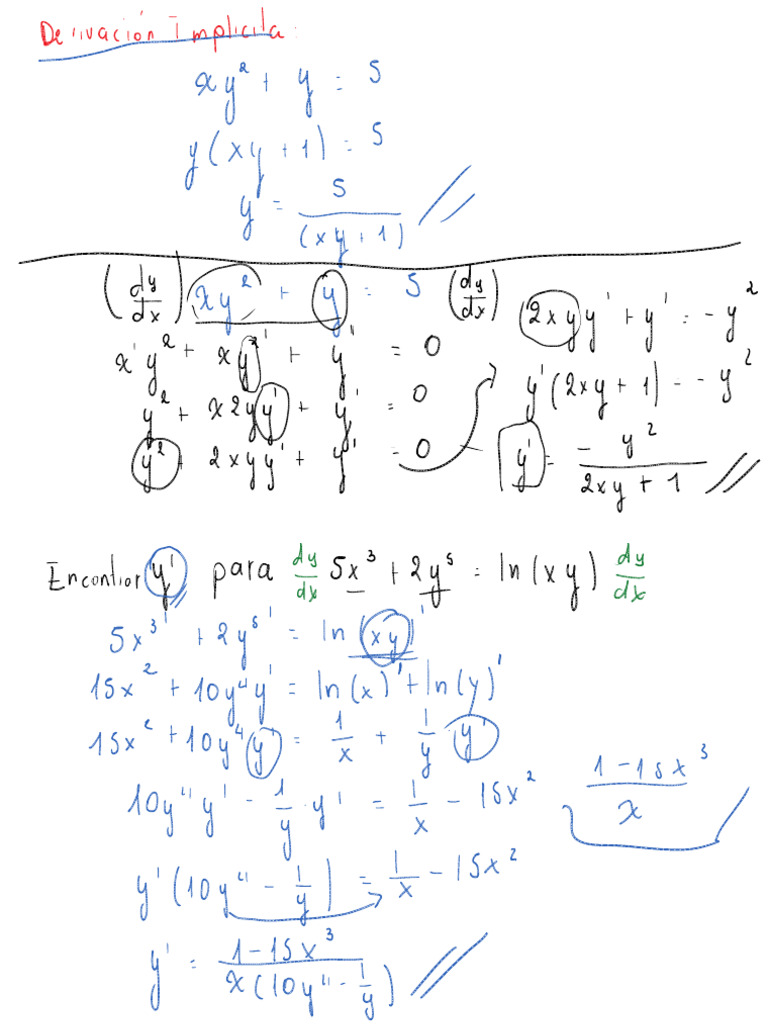 Derivación Implicita:
xy² + y = 5
y(xy + 1) = 5
y = 5/(xy + 1)
(dy/dx) xy² + y = 5 (dy/dx)
x'y² + xy²' + y' = 0
y² + x2yy' + y' = 0
y² + 2xyy' + y' = 0
2xyy' + y' = -y²
y'(2xy + 1) = -y²
y' = -y²/(2xy + 1)
Encontrar y' para dy/dx 5x³ + 2y⁵ = ln(xy) dy/dx
5x³' + 2y⁵' = ln(xy)'
15x² + 10y⁴y' = ln(x)' + ln(y)'
15x² + 10y⁴y' = 1/x + 1/y y'
10y⁴y' - 1/y · y' = 1/x - 15x²
(1 - 15x³)/x
y'(10y⁴ - 1/y) = 1/x - 15x²
y' = (1 - 15x³)/(x(10y⁴ - 1/y))